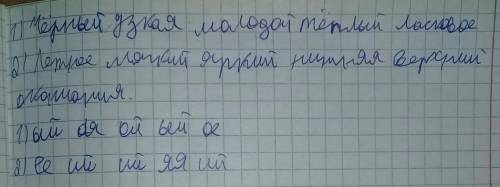 1) Чёрный узкая молодой тёплый ласковое
2) Летнее мягкий яркий нижняя верхний
окончания.
1) ый ая ой ый ое
2) ее ий ий яя ий